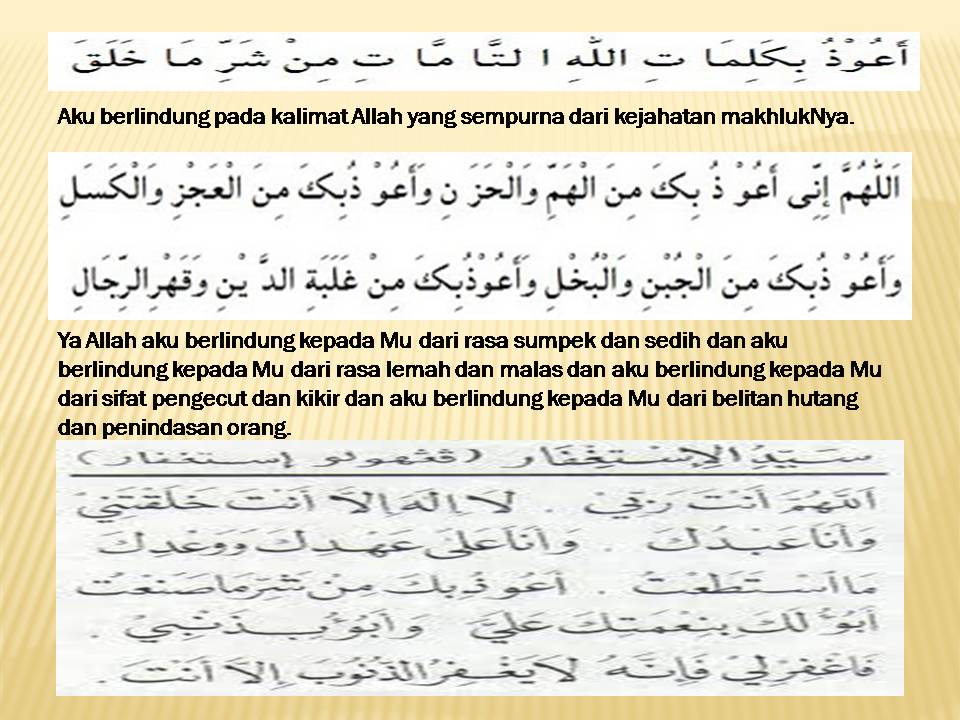 أَعُوْذُ بِكَلِمَا تِ اللهِ ا لتَّا مَّا تِ مِنْ شَرِّ مَا خَلَقَ
Aku berlindung pada kalimat Allah yang sempurna dari kejahatan makhlukNya.
اَللّٰهُمَّ إِنِّى أَعُوْ ذُ بِكَ مِنَ الْهَمِّ وَالْحَزَ نِ وَأَعُوْ ذُبِكَ مِنَ الْعَجْزِ وَالْكَسَلِ
وَأَعُوْ ذُبِكَ مِنَ الْجُبْنِ وَالْبُخْلِ وَأَعُوْذُبِكَ مِنْ غَلَبَةِ الدَّ يْنِ وَقَهْرِالرِّجَالِ
Ya Allah aku berlindung kepada Mu dari rasa sumpek dan sedih dan aku
berlindung kepada Mu dari rasa lemah dan malas dan aku berlindung kepada Mu
dari sifat pengecut dan kikir dan aku berlindung kepada Mu dari belitan hutang
dan penindasan orang.
سَيِّدُ الْإِسْتِغْفَار (ڤڠهولو إستغفار)
اَللّٰهُمَّ أَنْتَ رَبِّيْ . لَا إِلٰهَ إِلَّا أَنْتَ خَلَقْتَنِيْ
وَأَنَا عَبْدُكَ . وَأَنَا عَلَى عَهْدِكَ وَوَعْدِكَ
مَا اسْتَطَعْتُ . أَعُوْذُ بِكَ مِنْ شَرِّ مَا صَنَعْتُ
أَبُوْءُ لَكَ بِنِعْمَتِكَ عَلَيَّ وَأَبُوْءُ بِذَنْبِيْ .
فَاغْفِرْ لِيْ فَإِنَّهُ لَا يَغْفِرُ الذُّنُوْبَ إِلَّا أَنْتَ .